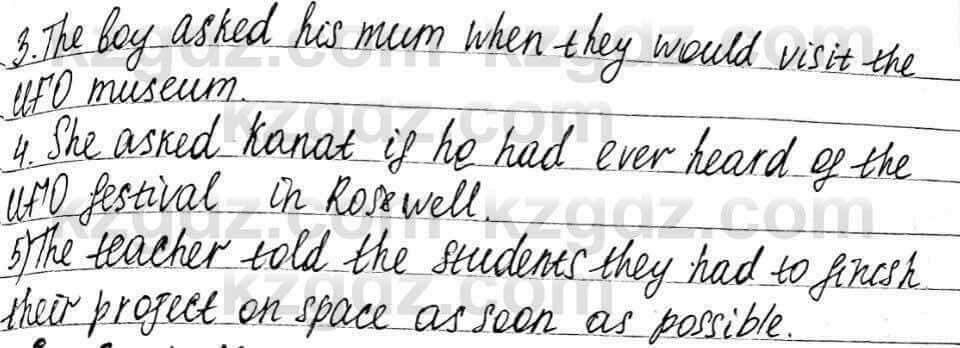 3. The boy asked his mum when they would visit the
UFO museum.
4. She asked Kanat if he had ever heard of the
UFO festival in Roswell.
5) The teacher told the students they had to finish
their project on space as soon as possible.